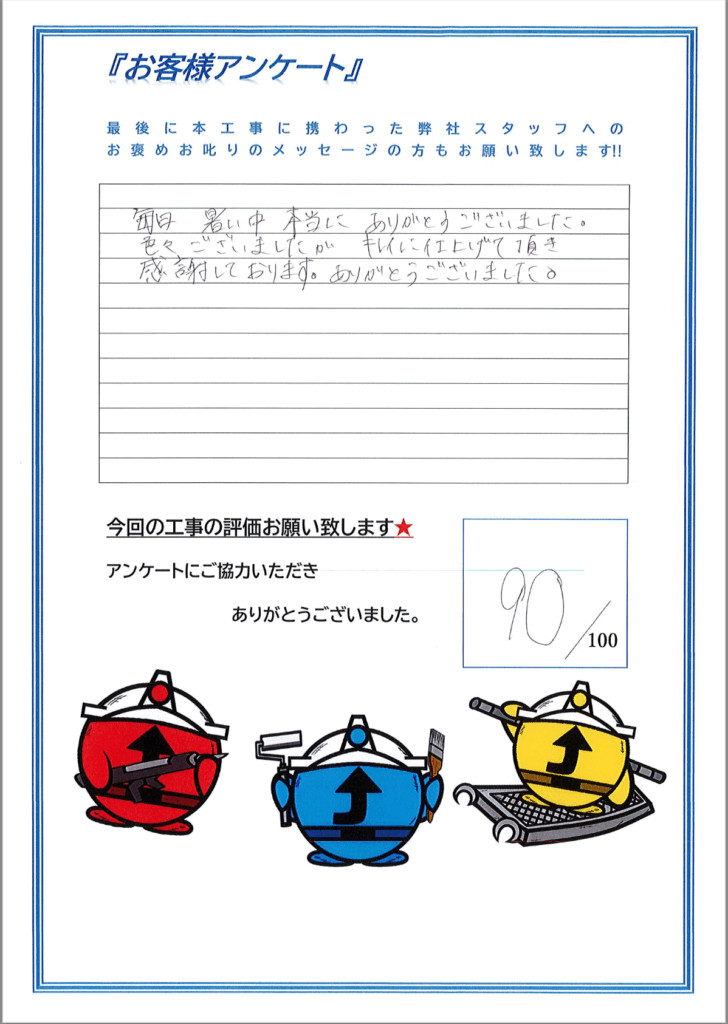 『お客様アンケート』
最後に本工事に携わった弊社スタッフへの
お褒めお叱りのメッセージの方もお願い致します!!
毎日 暑い中 本当に ありがとうございました。
色々ございましたが キレイに仕上げて頂き
感謝しております。ありがとうございました。
今回の工事の評価お願い致します★
アンケートにご協力いただき
ありがとうございました。
90/100